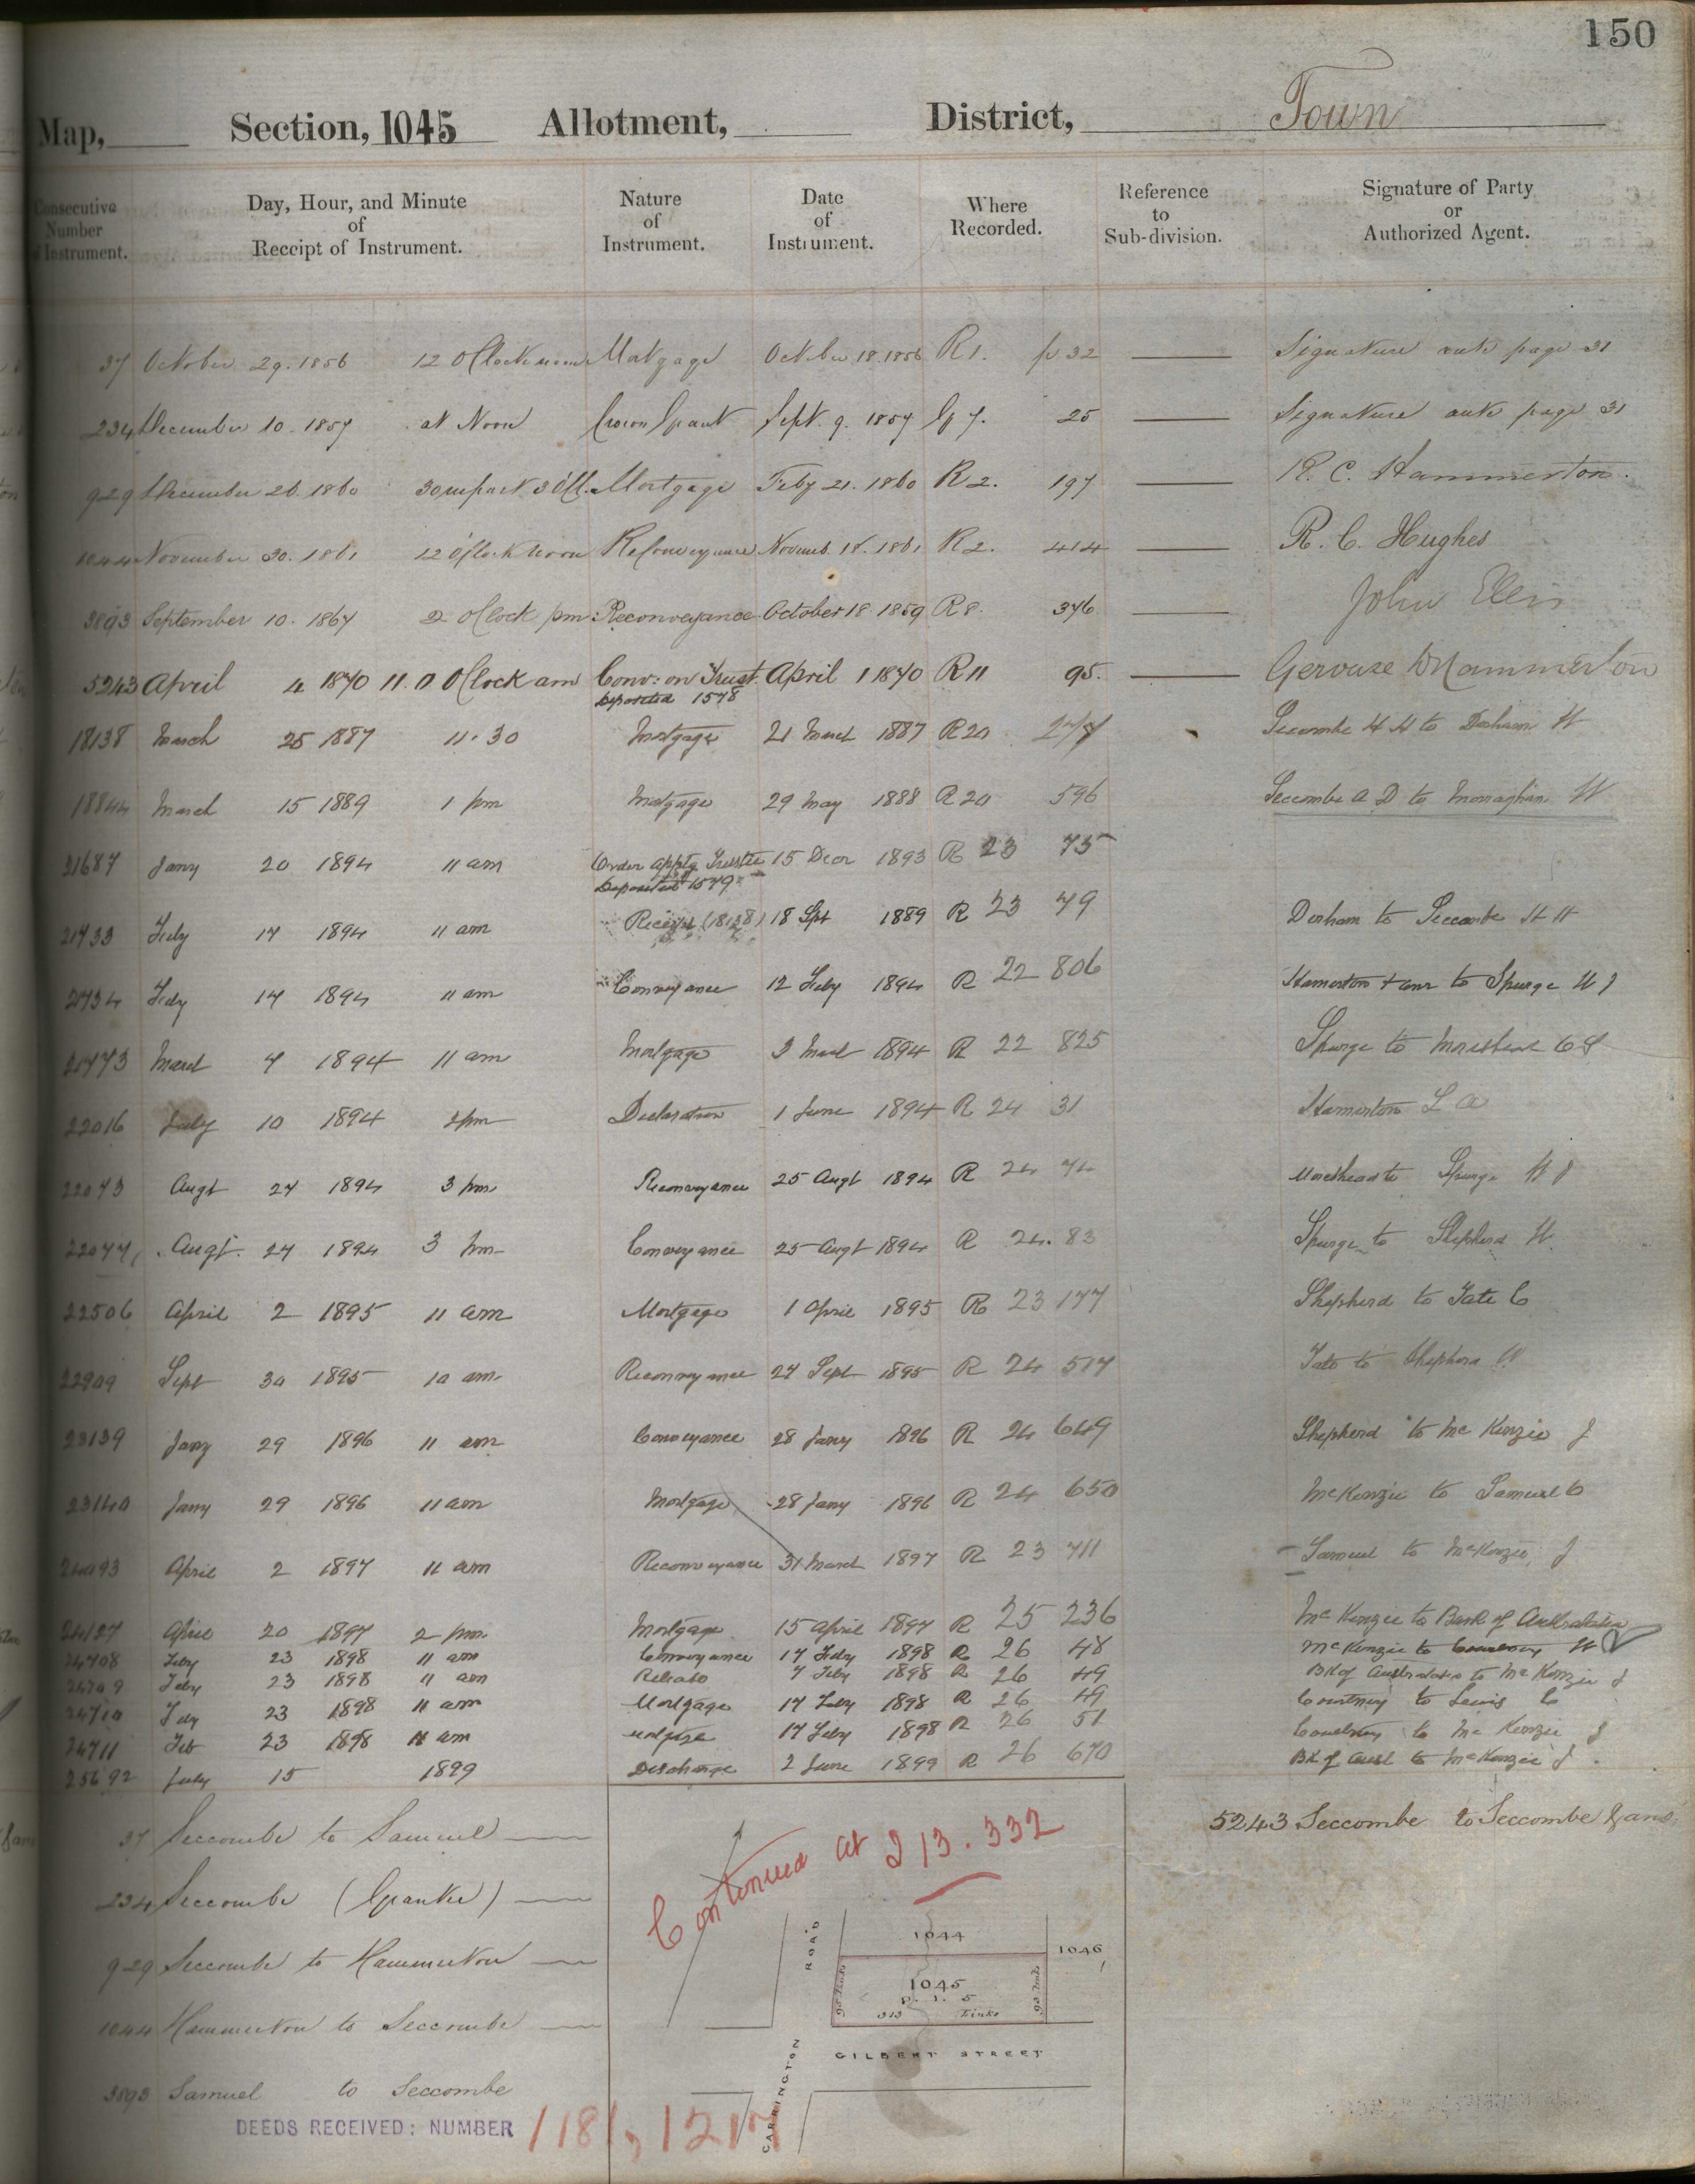 150
Map, Section, 1045 Allotment, District, Town
Consecutive Number of Instrument. Day, Hour, and Minute of Receipt of Instrument. Nature of Instrument. Date of Instrument. Where Recorded. Reference to Sub-division. Signature of Party or Authorized Agent.
37 October 29. 1856 12 OClock noon Mortgage October 18. 1856 R 1. p 32 Signature ante page 31
234 December 10. 1857 at Noon Crown Grant Sept. 9. 1857 G 7. 25 Signature ante page 31
929 December 26. 1860 Mortgage Feby 21. 1860 R 2. 197 R. C. Hammerton.
1044 November 30. 1861 12 O'Clock Noon Reconveyance Novemb. 18. 1861 R 2. 414 R. C. Hughes
3893 September 10. 1867 2 OClock pm Reconveyance October 18 1859 R 8. 376 John Ellis
5243 April 4 1870 11. OClock am Conv: on Trust April 1 1870 R 11 95. Gervase Hammerton
Deposited 1578
18138 March 25 1887 11.30 Mortgage 21 March 1887 R 20 Seccombe H H to Derham W
18844 March 15 1889 1 pm Mortgage 29 May 1888 R 20 596 Seccombe A D to Monaghan W
21687 Jany 20 1894 11 am Order apptg Trustee 15 Decr 1893 R 23 75
Deposited 1579
21733 Feby 17 1894 11 am Receipt (18138) 18 Spt 1889 R 23 79 Derham to Seccombe H H
21734 Feby 17 1894 11 am Conveyance 12 Feby 1894 R 22 806 Hamerton + anr to Spurge W J
21773 March 7 1894 11 am Mortgage 3 March 1894 R 22 825 Spurge to Morshead
22016 July 10 1894 2 pm Declaration 1 June 1894 R 24 31 Hamerton L A
22073 Augt 27 1894 3 pm Reconveyance 25 Augt 1894 R 24 74 Morshead to Spurge W J
22077 Augt. 27 1894 3 pm Conveyance 25 Augt 1894 R 24. 83 Spurge to Shepherd W.
22506 April 2 1895 11 am Mortgage 1 April 1895 R 23 177 Shepherd to Tate C
22909 Sept 30 1895 10 am Reconveyance 27 Sept 1895 R 24 517 Tate to Shepherd W
23139 Jany 29 1896 11 am Conveyance 28 Jany 1896 R 24 649 Shepherd to McKenzie J
23140 Jany 29 1896 11 am Mortgage 28 Jany 1896 R 24 650 McKenzie to Samuel O
24093 April 2 1897 11 am Reconveyance 31 March 1897 R 23 711 Samuel to McKenzie J
24127 April 20 1897 2 pm. Mortgage 15 April 1897 R 25 236 McKenzie to Bank of Australasia
24708 Feby 23 1898 11 am Conveyance 17 Feby 1898 R 26 48 McKenzie to Courtney W
24709 Feby 23 1898 11 am Release 7 Feby 1898 R 26 49 Bk of Australasia to McKenzie J
24710 Feby 23 1898 11 am Mortgage 17 Feby 1898 R 26 49 Courtney to Lewis C
24711 Feb 23 1898 11 am Mortgage 17 Feby 1898 R 26 51 Courtney to McKenzie J
25692 July 15 1899 Discharge 2 June 1899 R 26 670 Bk of Aust to McKenzie J.
37 Seccombe to Samuel
234 Seccombe (Grantee)
929 Seccombe to Hammerton
1044 Hammerton to Seccombe
3893 Samuel to Seccombe
5243 Seccombe to Seccombe & ans
Continued at 213.332
ROAD
1044
1046
1045
P. 1. 5
313 Links
95 Links
93 Links
GILBERT STREET
CARRINGTON
DEEDS RECEIVED: NUMBER 1181, 1217